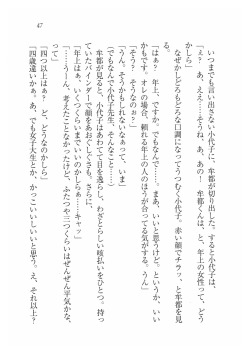 47
いつまでも言い出さない小代子に、牟都が切り出した。すると小代子は、
「え？　あ、ええ……そうね、あ、あの！　牟都くんは、と、年上の女性って、どう
かしら」
なぜかしどろもどろな口調になってうつむく小代子。赤い顔でチラッ、と牟都を見
る。
「はぁ？　年上、ですか」
「そう？　そうなのぉ？」
「えっ、な、なんでも……。まあ、いいと思うけど。というか、いい
かもです。オレの場合、頼れる年上の人のほうが合ってる気がする。うん」
「うん。そうかもしれないなぁって、いま」
「でも、小代子先生、あんなこと」
牟都が見ると、小代子はあわてて目を逸らし、わざとらしい咳払いをひとつ。持っ
ていたバインダーで顔をあおぐしぐさも。さらに、
「年上はぁ、いくつくらいまで……キャッ」
「……うーん、考えたことなかったけど、ふたつや三つくらいはぜんぜん平気かな、
って」
「四つ以上はぁ？　ど、どうなのかしら」
「四歳違いかぁ。あ、でも女子大生とか、かっこいいしいいと思う。え、それ以上？